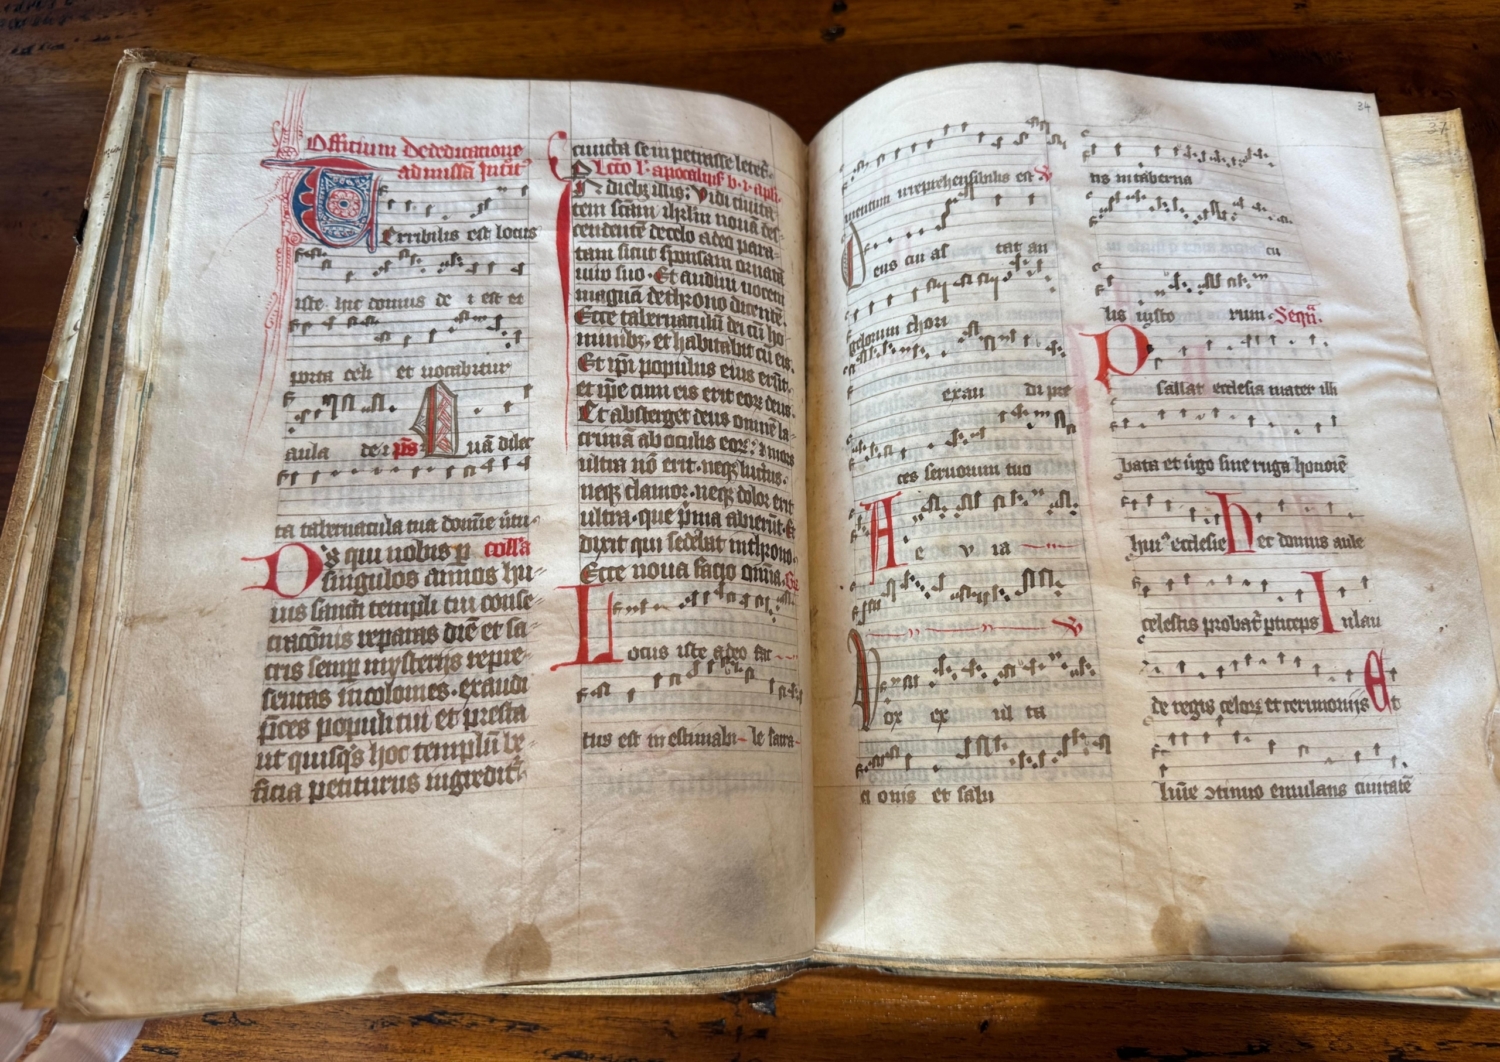 Officium de dedicatione
ad missam
Terribilis est locus
iste hic domus de i est et
porta celi et uocabitur
aula de i ps Quā dilec
ta tabernacula tua domīe ūtu-
Ds qui nobis p colla
singulos annos hu-
ius sancti templi tui conse-
cracōnis reparas diē et sa-
cris semp mysterijs repre-
sentas incolomes · exaudi
pces populi tui et presta
ut quisqs hoc templū be-
ficia petiturus ingredit
cuncta se impetrasse letet
Lcco l apocalips b i apli
In dieb illis; Vidi ciuita
tem scām ihrlm nouā des-
cendentē de celo a deo para-
tam sicut sponsam ornatā
uiro suo · Et audiui uocem
magnā de throno dicentē.
Ecce tabernaculū dei cū ho
minibz et habitabit cū eis.
Et ipi populus eius erūt.
et ipe cum eis erit eoz deus.
Et absterget deus omnē la-
crimā ab oculis eoz: ⁊ mors
ultra nō erit · neqz luctus.
neqz clamor · neqz dolor erit
ultra · que pma abierūt · &
dixit qui sedebat in throno.
Ecce noua facio omnia. Gr
Locus iste a deo fac
tus est inestimabi- le sacra-
mentum irreprehensibilis est V
Deus cui as tat an
gelorum chori
exau di pre
ces seruorum tuo
Ae v ia
V
Vox ex ul ta
ci onis et salu
tis in taberna
cu
lis iusto rum · Sequ
Psallat ecclesia mater illi
bata et ūgo sine ruga honorē
hui⁹ ecclesie hec domus aule
celestis probat pticeps In lau
de regis celoz et cerimonijs Et
lumē ꝯtinuo emulans ciuitatē
34